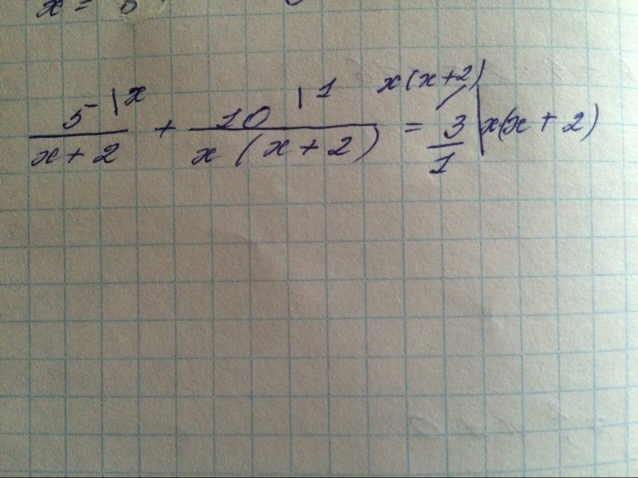 x =
5 |x / x + 2 + 10 |1 / x (x + 2) = 3 / 1 |x(x + 2)
x(x+2)